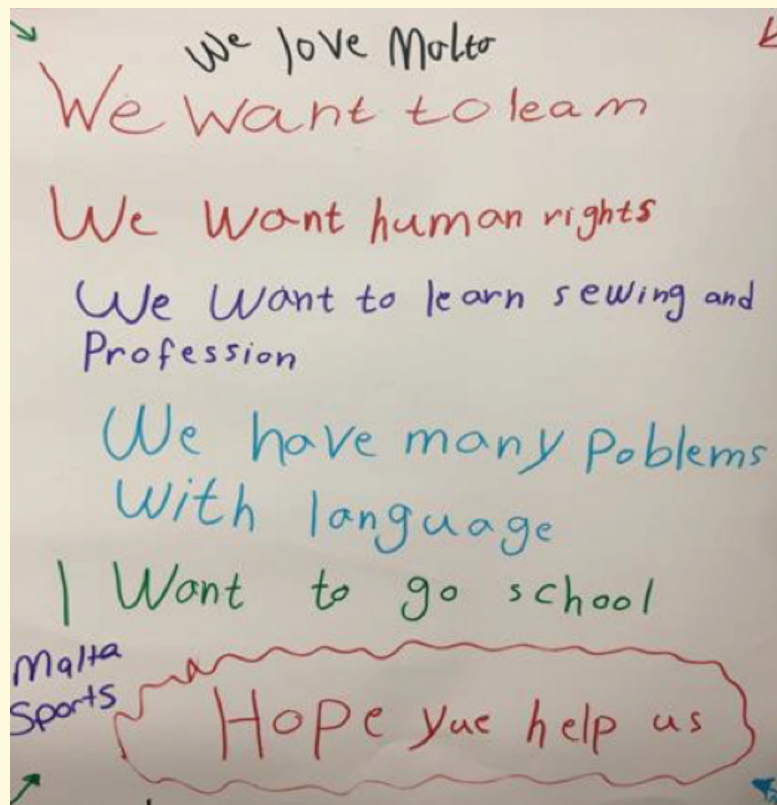 We love Malta
We want to learn
We Want human rights
We Want to learn sewing and
Profession
We have many Poblems
With language
I Want to go school
Malta
Sports
Hope yue help us